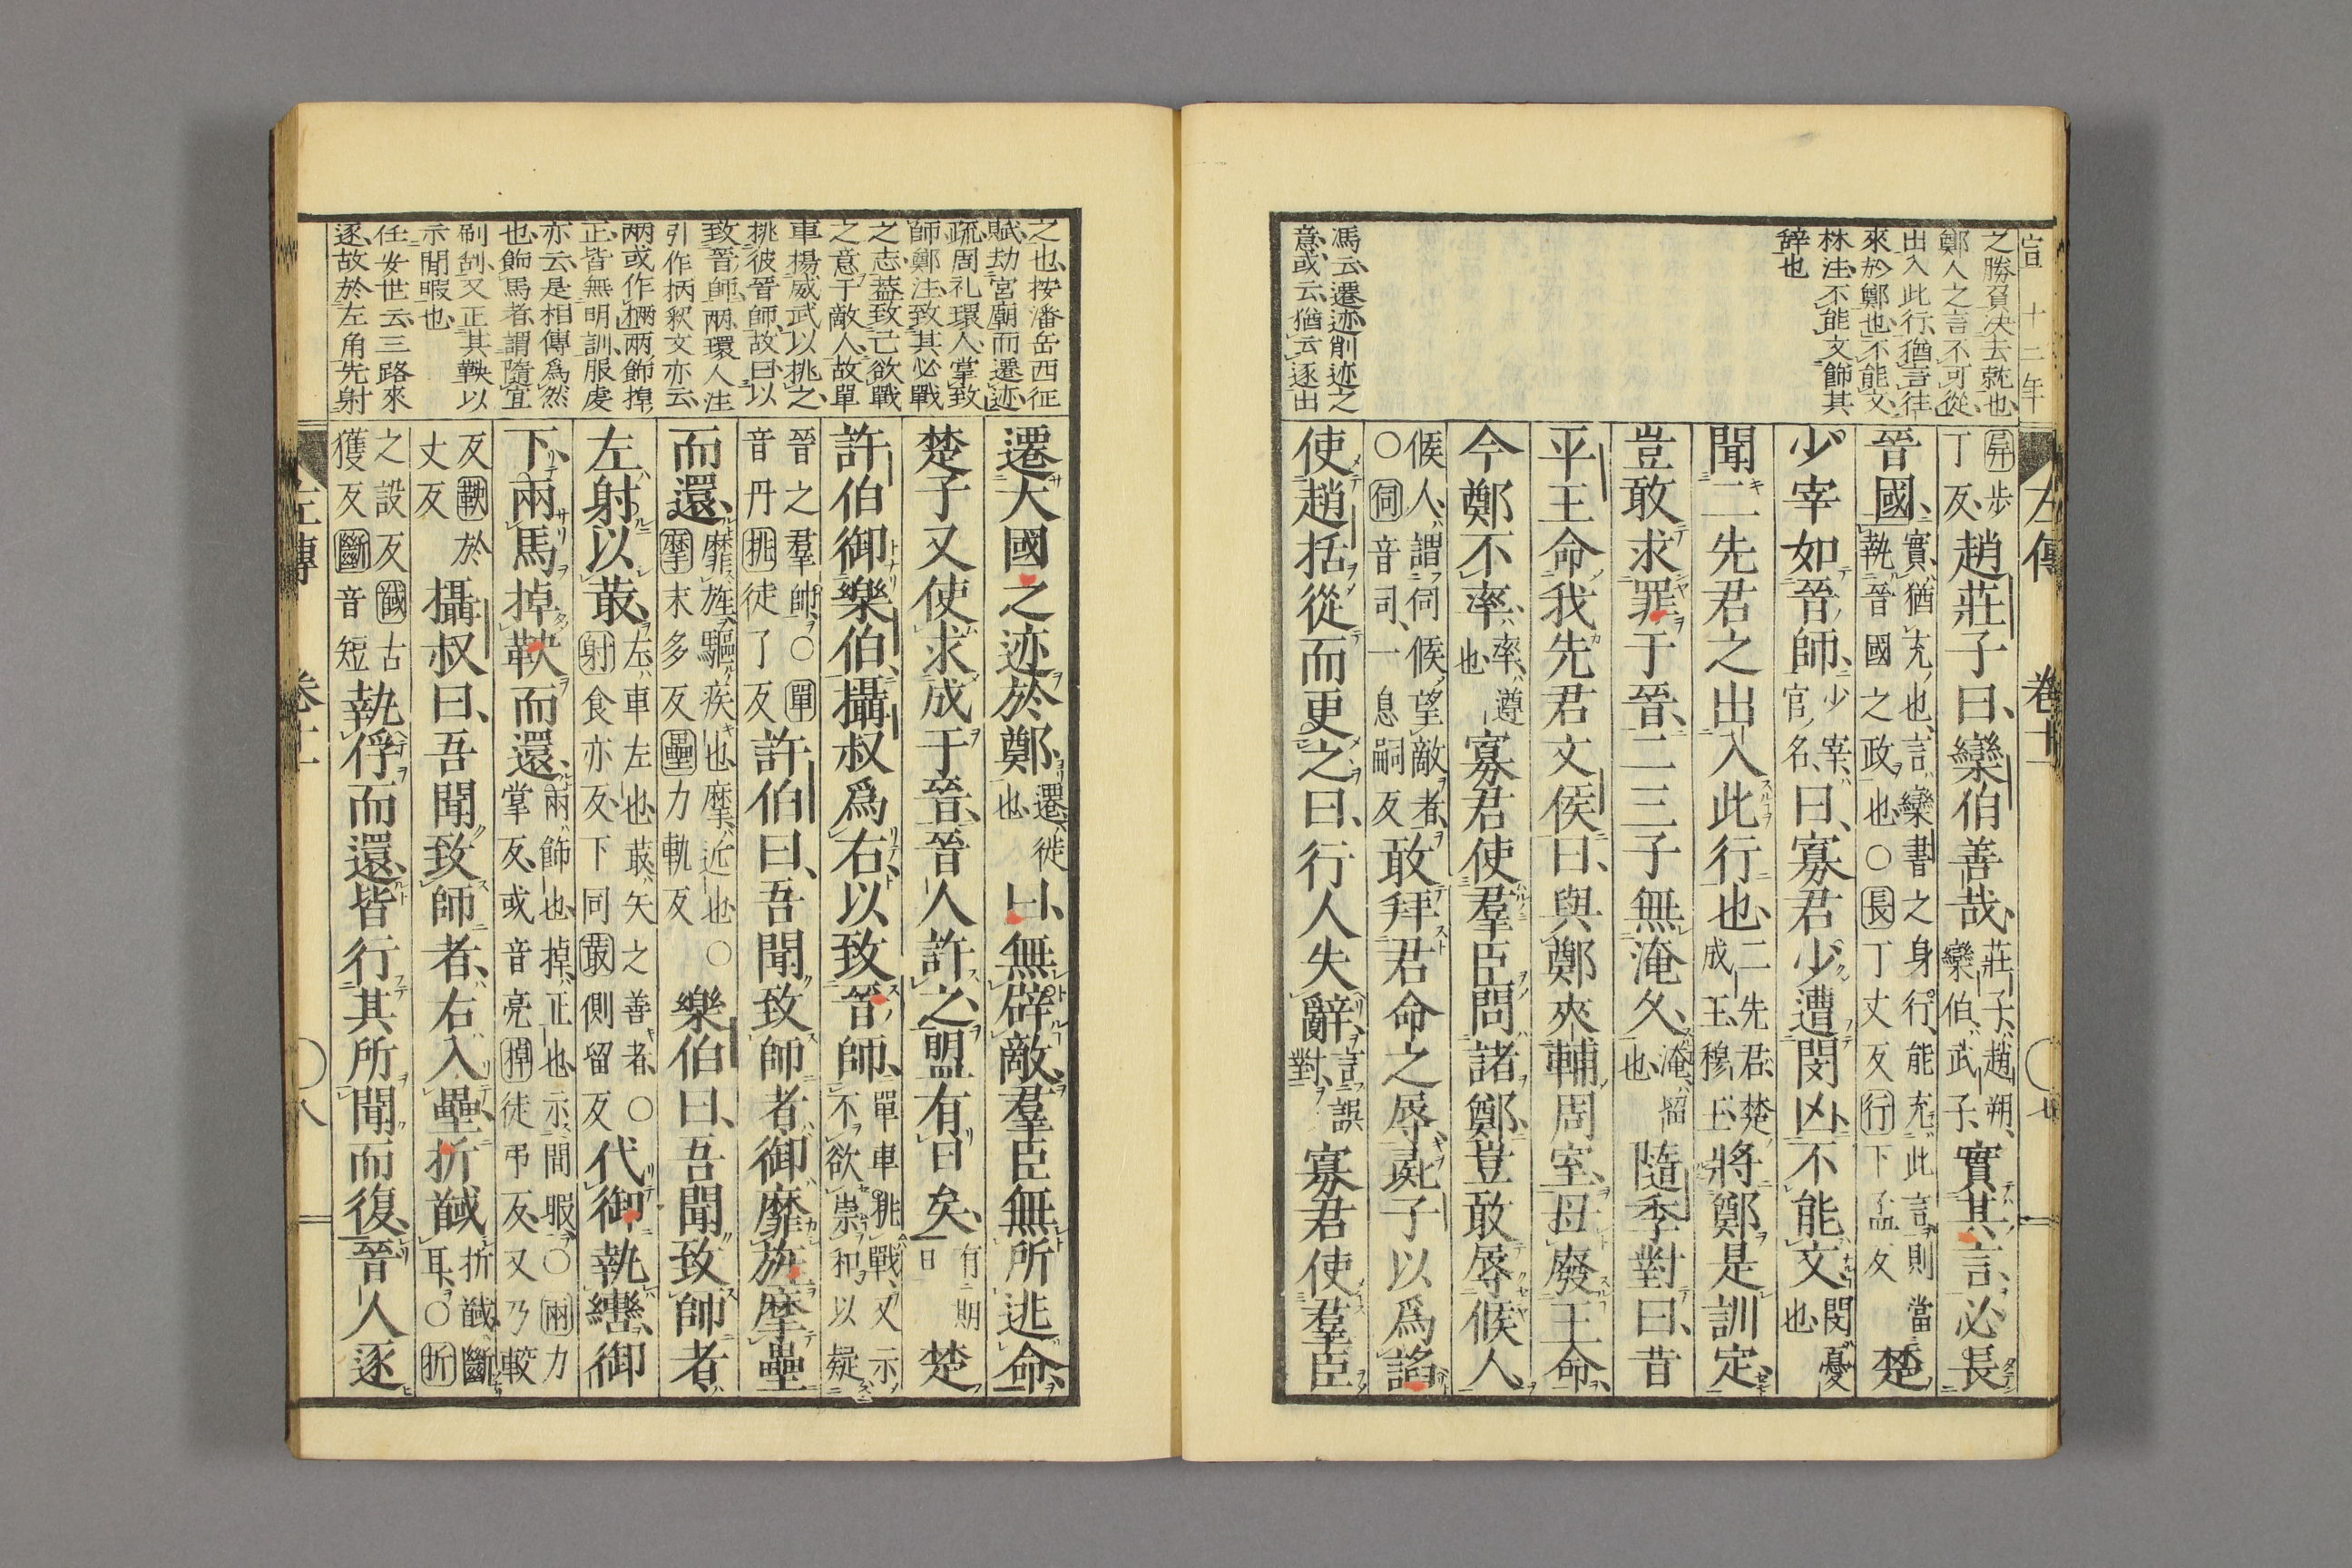 宣十二年
左傳
卷十一
七
之勝負決去就也
鄭人之言不可從
出入此行猶言往
來於鄭也不能文
林注不能文飾其
辭也
馮云遷迹削迹之
意或云猶云逐出
屏步丁反趙莊子曰欒伯善哉莊子趙朔欒伯武子實其言必長
晉國實猶充也言欒書之身行能充此言則當執晉國之政也○長丁丈反行下孟反楚
少宰如晉師少宰官名曰寡君少遭閔凶不能文閔憂也
聞二先君之出入此行也二先君楚成王穆王將鄭是訓定
豈敢求罪于晉二三子無淹久淹留也隨季對曰昔
平王命我先君文侯曰與鄭夾輔周室毋廢王命
今鄭不率率遵也寡君使羣臣問諸鄭豈敢辱候人
候人謂伺候望敵者○伺音司一息嗣反敢拜君命之辱彘子以爲諂
使趙括從而更之曰行人失辭言誤對寡君使羣臣
之也按潘岳西征
賦劫宮廟而遷迹
疏周礼環人掌致
師鄭注致其必戰
之志蓋致己欲戰
之意于敵人故單
車揚威武以挑之
挑彼晉師故曰以
致晉師兩環人注
引作掚釈文亦云
兩或作掚兩飾掉
正皆無明訓服虔
亦云是相傳爲然
也飾馬者謂隨宜
刷刮又正其鞅以
示閒暇也
任安世云三路來
逐故於左角先射
遷大國之迹於鄭遷徙也曰無辟敵羣臣無所逃命
楚子又使求成于晉晉人許之盟有日矣有期日楚
許伯御樂伯攝叔爲右以致晉師單車挑戰又示不欲崇和以疑
晉之羣帥○單音丹挑徒了反許伯曰吾聞致師者御靡旌摩壘
而還靡旌驅疾也摩近也○摩末多反壘力軌反樂伯曰吾聞致師者
左射以菆左車左也菆矢之善者○射食亦反下同菆側留反代御執轡御
下兩馬掉鞅而還兩飾也掉正也示閒暇○兩力掌反或音亮掉徒弔反又乃較
反鞅於丈反攝叔曰吾聞致師者右入壘折馘折馘斷耳○折
之設反馘古獲反斷音短執俘而還皆行其所聞而復晉人逐
左傳
卷十一
八